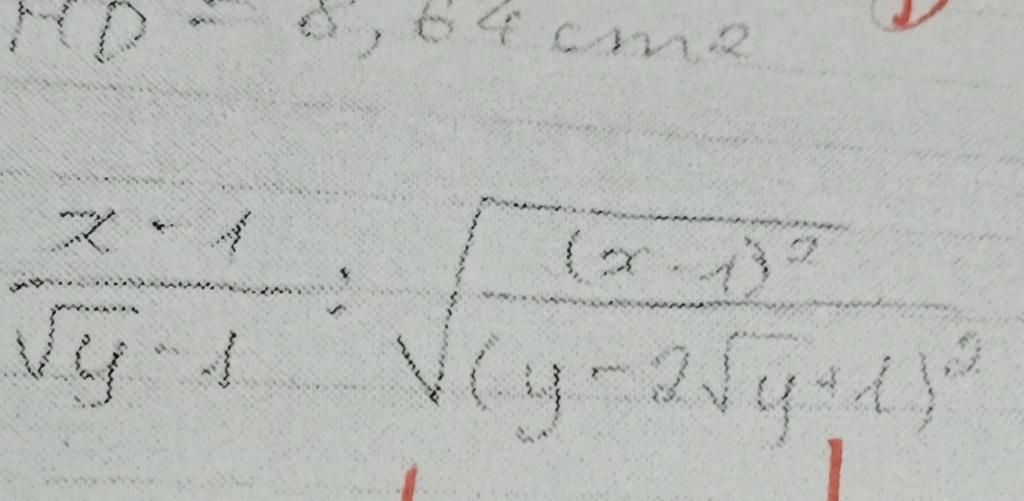 HD = 8,64 cm2
x - 1 / √y - 1 : √((x - 1)² / (y - 2√y + 1)²)